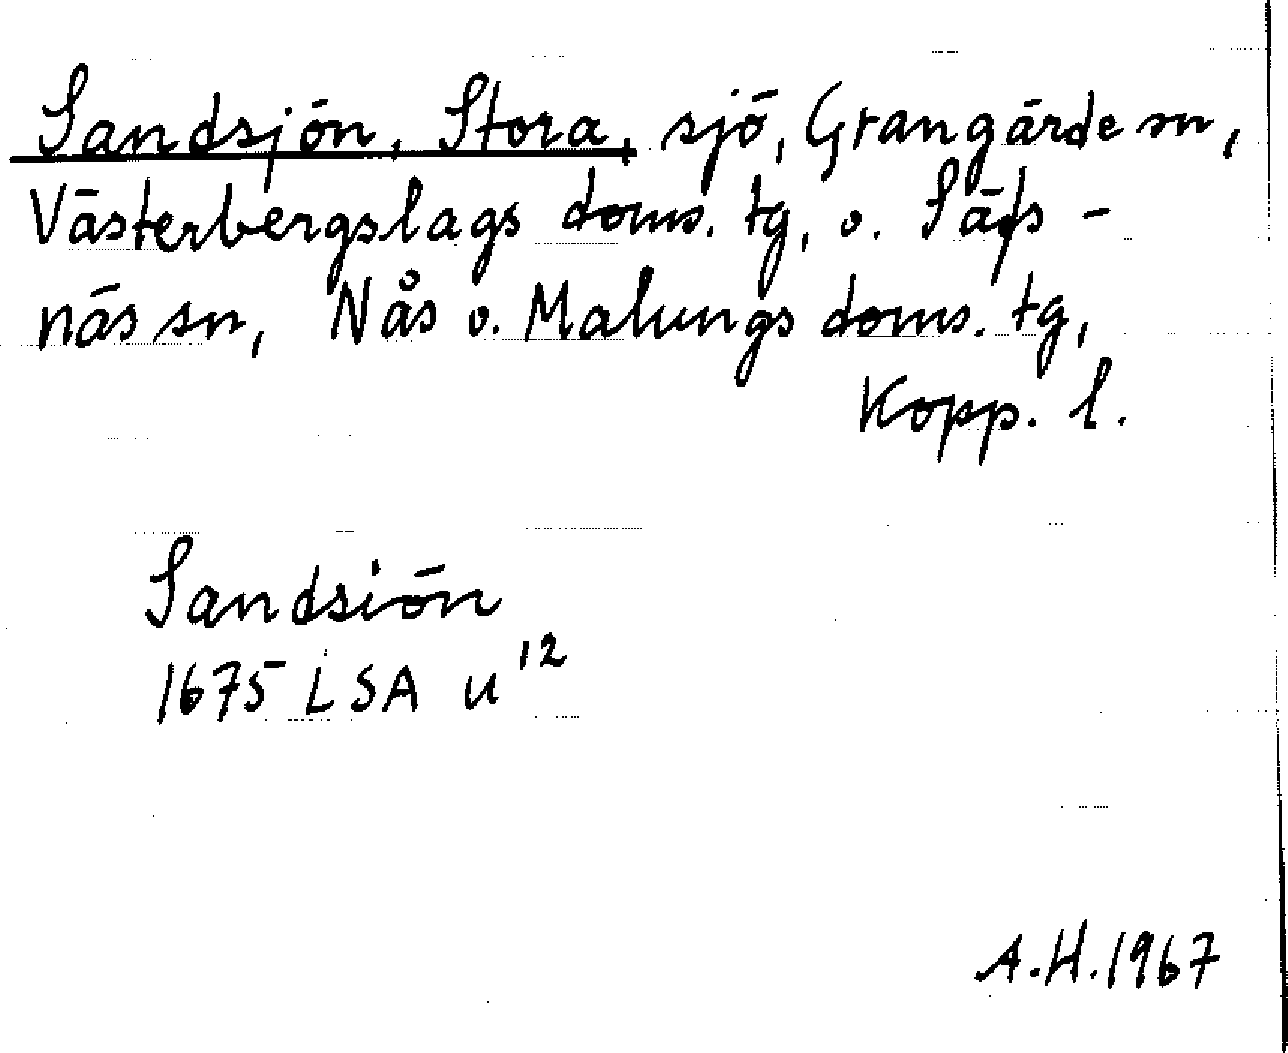 Sandsjön, Stora, sjö, Grangärde sn,
Västerbergslags doms. tg, o. Säfs-
näs sn, Nås o. Malungs doms. tg,
Kopp. l.
Sandsiön
1675 LSA u 12
A.H. 1967